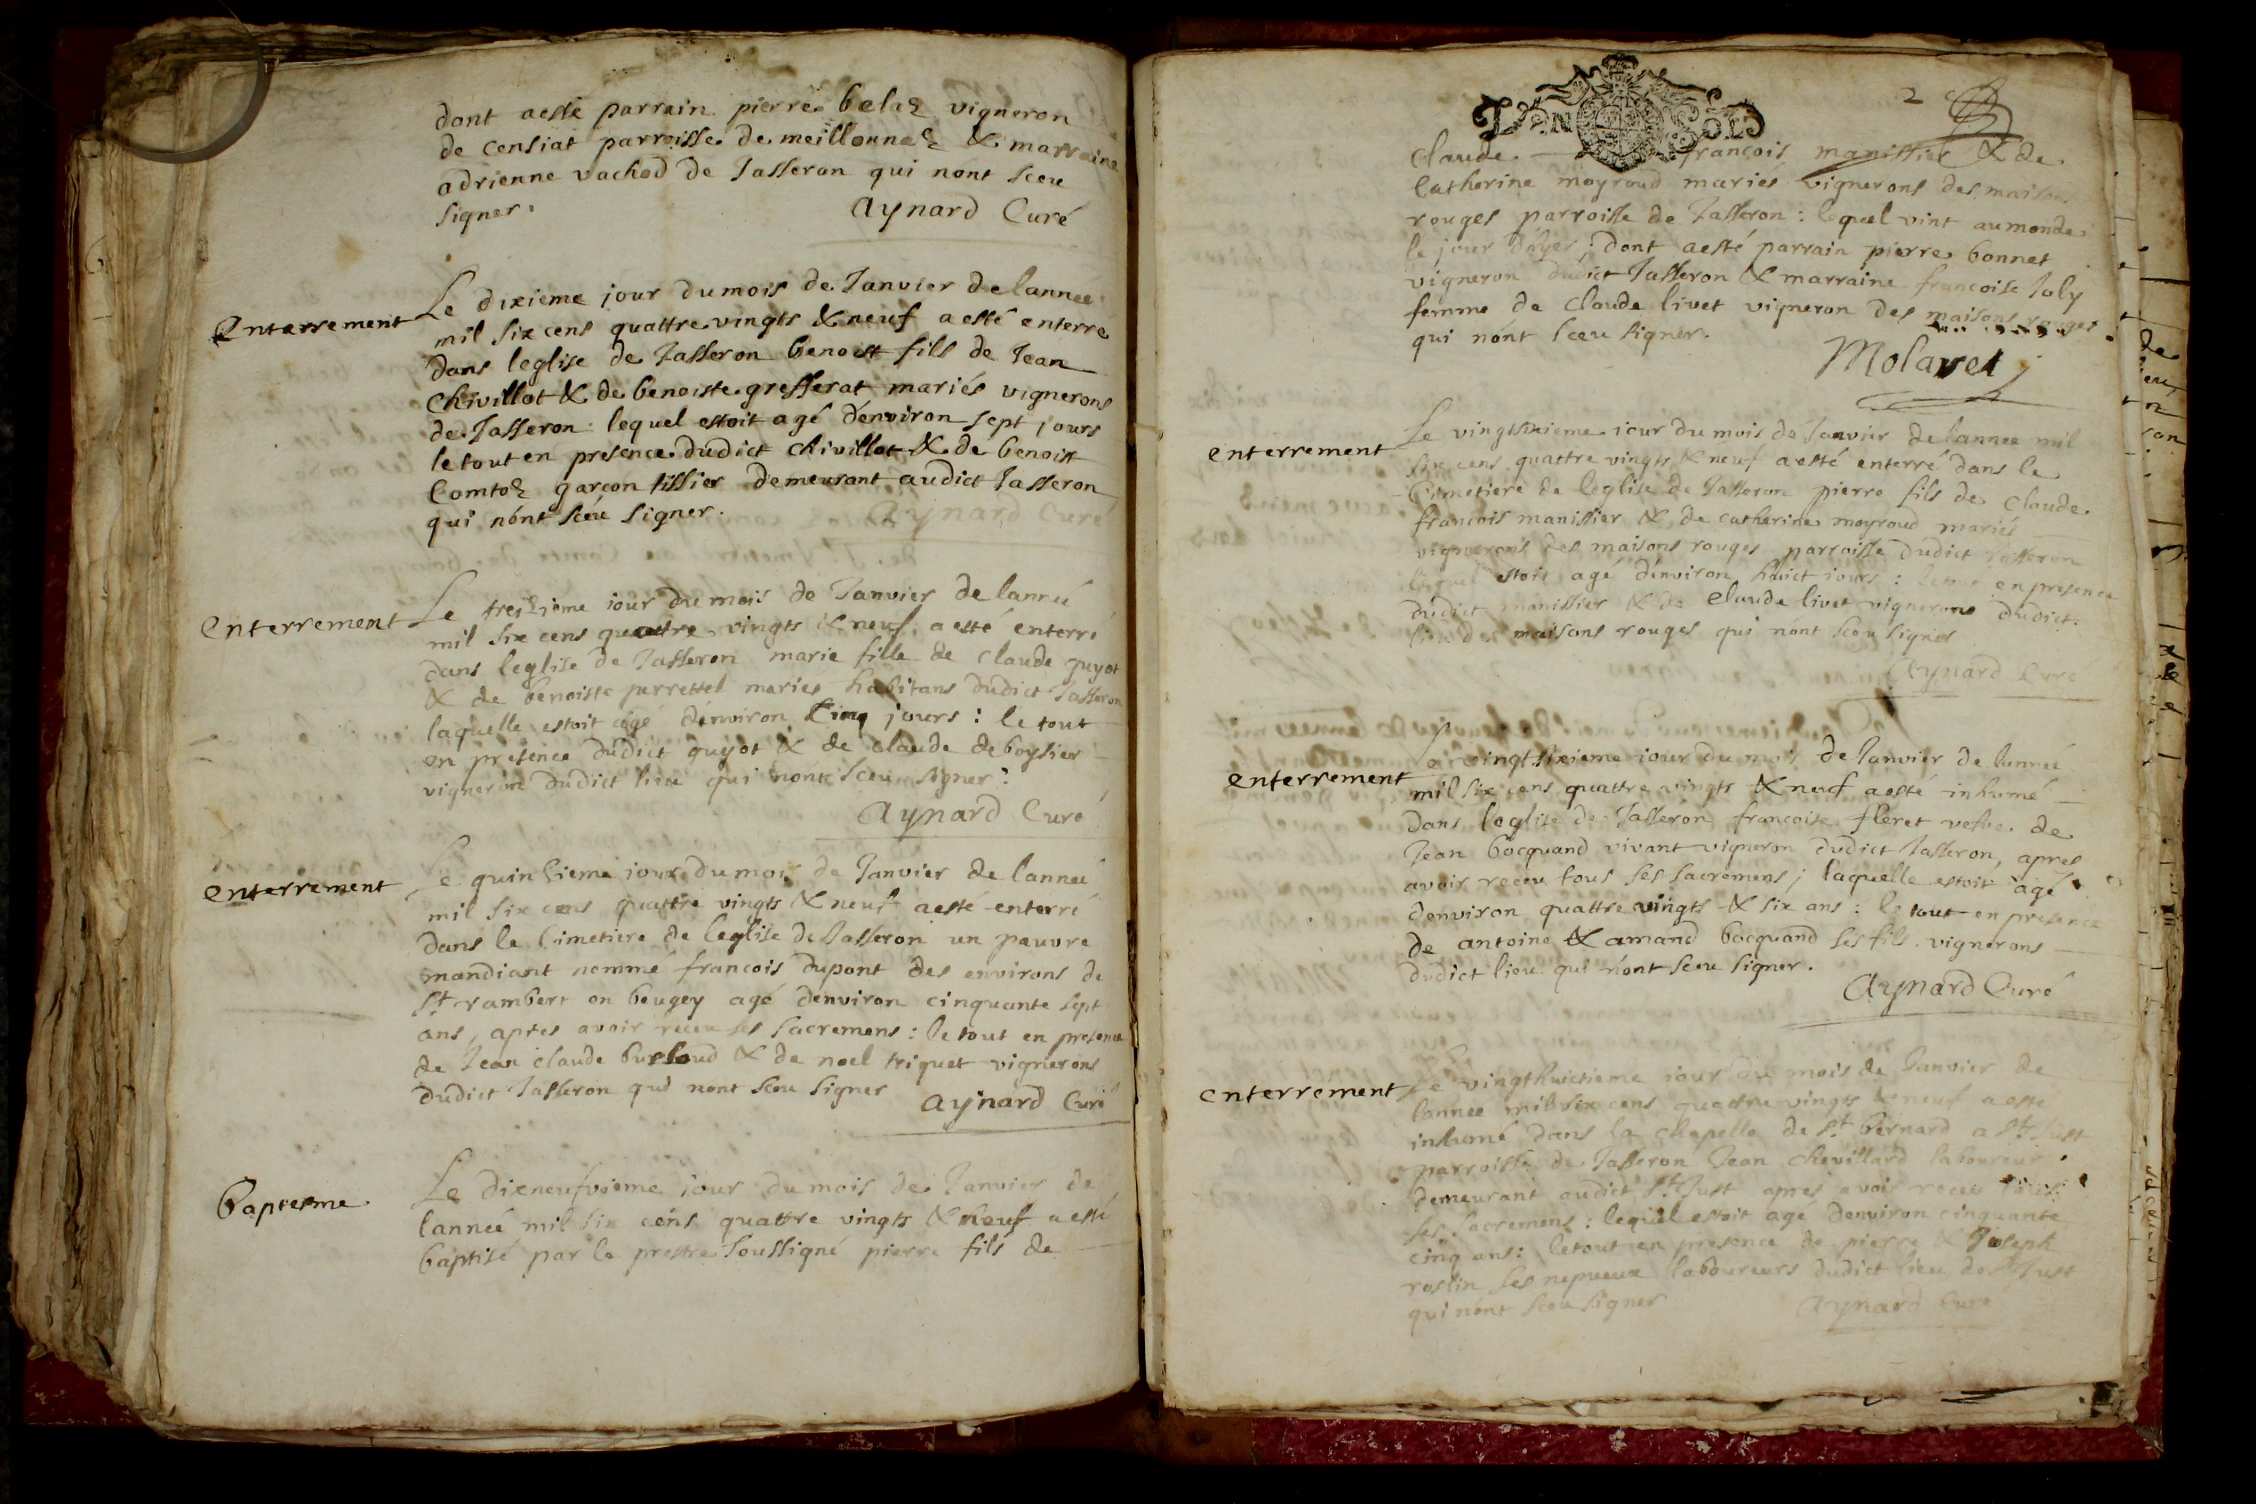 dont aesté parrain pierre belaz vigneron
de censiat parroisse de meillonnaz & marraine
adrienne vachod de Jasseron qui nont sceu
signer. Aynard Curé
Enterrement
Le dixieme jour du mois de Janvier de lannee
mil six cens quattre vingts & neuf a esté enterré
dans leglise de Jasseron benoist fils de Jean
Chivillot & de benoiste gresserat mariés vignerons
de Jasseron lequel estoit agé d'environ sept jours
le tout en presence dudict chivillot & de benoist
Comtoz garçon tissier demeurant audict Jasseron
qui nónt scéu signer. Aynard Curé
Enterrement
Le treizieme jour du mois de Janvier de lanneé
mil six cens quattre vingts & neuf a esté enterré
dans leglise de Jasseron marie fille de claude guyot
& de benoiste perrettel mariés habitans dudict Jasseron
laquelle estoit agé d'environ Cinq jours : le tout
en presence dudict guyot & de claude deboysier
vigneron dudict lieu qui nont sceu signer
Aynard Curé
enterrement
Le quinzieme jour du mois de Janvier de lanneé
mil six cens quattre vingts & neuf aesté enterré
dans le Cimetiere de leglise de Jasseron un pauvre
mandiant nommé francois dupont des environs de
St rambert en beugey agé denviron cinquante sept
ans, apres avoir receu ses sacremens : le tout en presence
de Jean claude burloud & de noel triquet vignerons
dudict Jasseron qui nont sceu signer Aynard Curé
baptesme
Le dixneufvieme jour du mois de Janvier de
lanneé mil six cens quattre vingts & neuf a esté
baptisé par le prestre soussigné pierre fils de
2
claude françois manissier & de
Catherine moyroud mariés vignerons des maisons
rouges parroisse de Jasseron : lequel vint au monde
le jour d'hyer ; dont aesté parrain pierre bonnet
vigneron dudict Jasseron & marraine francoise Joly
femme de claude livet vigneron des maisons rouges
qui nónt sceu signer.
Molaret
enterrement
Le vingtsixieme jour du mois de Janvier de lannee mil
six cens quattre vingts & neuf aesté enterré dans le
Cimetiere de leglise de Jasseron pierre fils de claude
francois manissier & de catherine moyroud mariés
vignerons des maisons rouges parroisse dudict Jasseron
lequel estoit agé d'environ huict jours : le tout en presence
dudict manissier & de Claude livet vignerons dudict
lieu des maisons rouges qui nónt sceu signer
Aynard Curé
enterrement
Le vingtsixieme jour du mois de Janvier de lanneé
mil six cens quattre vingts & neuf aesté inhumé
dans leglise de Jasseron francoise fleret vefve de
Jean bocquand vivant vigneron dudict Jasseron, apres
avoir receu tous ses sacremens ; laquelle estoit agé
denviron quattre vingts & six ans : le tout en presence
de antoine & amand bocquand ses fils vignerons
dudict lieu qui n'ont sceu signer.
Aynard Curé
enterrement
Le vingthuictieme jour du mois de Janvier de
lannee mil six cens quattre vingts & neuf a esté
inhumé dans la chapelle de St bernard a St Just
parroisse de Jasseron Jean chevillard laboureur
demeurant audict St Just apres avoir receu tous
ses sacremens : lequel estoit agé denviron cinquante
cinq ans : le tout en presence de pierre & Joseph
roslin ses nepveux laboureurs dudict lieu de St Just
qui nónt sceu signer Aynard Curé